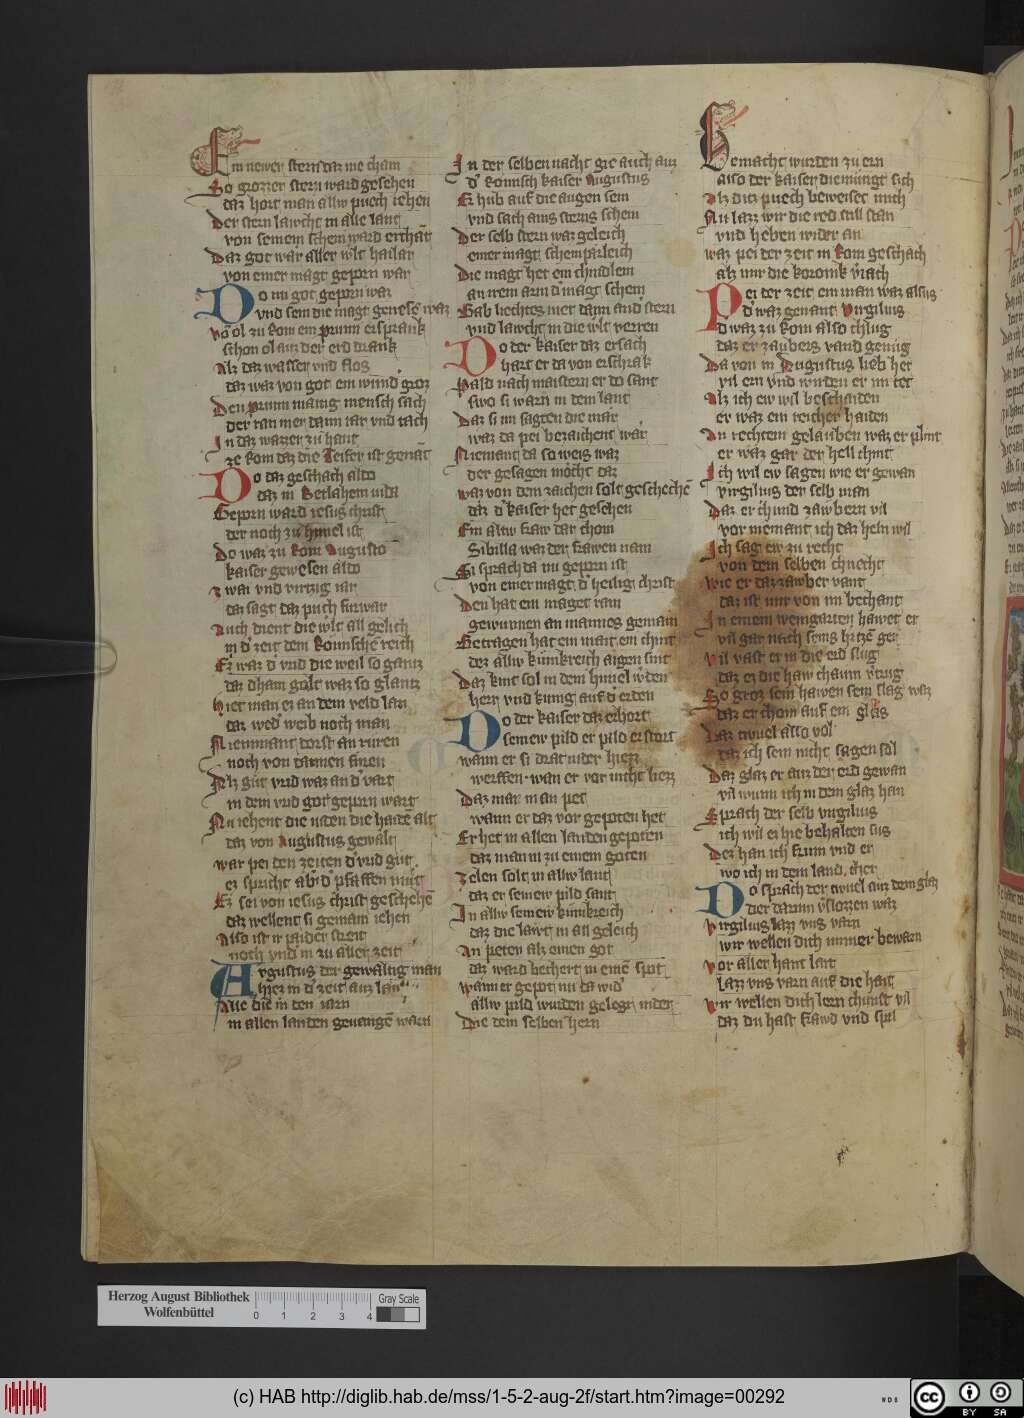 Ein newer stern dar nie cham
So grozzer stern ward gesehen
daz hort man allw puech iehen
Der stern lawcht in alle lant
von seinem schein ward erchāt
Daz got war aller wlt hailar
von einer magt geporn war
Do nu got geporn waz
vnd sein die magt genesē waz
vō ol zu Rom ein prunn ersprank
schon ol auz der erd drank
Alz daz wasser vnd flos
daz waz von got ein wund groz
Den prunn manig mensch sach
der ran mer dann iar vnd tach
In daz wazzer zu hant
ze Rom daz die Teifer ist genāt
Do daz geschach aldo
daz in Betlahem iuda
Geporn ward iesus christ
der noch zu himel ist
Do waz zu Rom Augusto
kaiser gewesen aldo
zwai vnd virtzig iar
daz sagt daz puch furwar
Auch dient die wlt all gelich
in d' zeit dem Romische reich
Ez waz d' vnd die weil so gantz
daz dham golt waz so glantz
hiet man ez an dem veld lan
daz wed' weib noch man
Niemmant dorst an ruren
noch von dannen furen
Alz gut vrid waz an d' vart
in dem vnd got geporn wart
Nu iehent die iuden die haidē alt
daz von Augustus gewalt
war pei den zeiten d' vrid gut
ez spricht ab' d' pfaffen mut
Ez sei von iesus christ geschehē
daz wellent si gemain iehen
Also ist ir paider streit
noch vnd in zu aller zeit
Augustus der gewaltig man
hiez in d' zeit auz lan
Alle die in den iarn
in allen landen geuangē warn
In der selben nacht gie auch auz
d' Romisch kaiser Augustus
Er hub auf die augen sein
vnd sach ains sterns schein
Der selb stern waz geleich
einer magt schemparleich
Die magt het ein chindlein
an irem arm d' magt schein
Gab liechtes mer dann and' stern
vnd lawcht in die wlt verren
Do der kaiser daz ersach
hart er da von erschrak
Pald nach maistern er do sant
swo si warn in dem lant
Daz si im sagten die mar
waz da pei bezaichent war
Niemant da so weis waz
der gesagen mocht daz
waz von dem zaichen solt geschechē
daz d' kaiser het gesehen
Ein altw fraw dar chom
Sibilla waz der frawen nam
Si sprach da nu geporn ist
von einer magt d' heilig christ
Den hat ein maget rain
gewunnen an mannes gemain
Getragen hat ein mait ein chint
dez allw kunikreich aigen sint
Daz kint sol in dem himel w'den
herr vnd kunig auf d' erden
Do der kaiser daz erhort
seinew pild er pild er stort
wann er si drat nider hiezz
werffen wan er vor nicht liezz
Daz man in an pet
wann er daz vor gepoten het
Er het in allen landen gepoten
daz man in zu einem goten
zelen solt in allw lant
daz er seinew pild sant
In allw seinew kunikreich
daz die lawt in all geleich
An peten alz einen got
daz ward bechert in einē spot
wann er gepot nu ta wid'
allw pild wurden gelegt nider
Die dem selben hern
Gemacht wurden zu ern
Also der kaiser diemutigt sich
Alz ditz puech beweiset mich
Nu lazz wir die red still stan
vnd heben wider an
waz pei der zeit in Rom geschach
alz mir die koronik v'iach
Pei der zeit ein man waz alsus
d' waz genant Virgilius
d' waz zu Rom also chlug
daz er zaubers vand genug
Da von in Augustus lieb het
vil ern vnd wirden er im tet
Alz ich ew wil beschaiden
er waz ein reicher haiden
An rechtem gelauben waz er plint
er waz gar der hell chint
Ich wil ew sagen wie er gewan
virgilius der selb man
Daz er chund zawbern vil
vor niemant ich daz heln wil
Ich sag ew zu recht
von dem selben chnecht
wie er daz zawber vant
daz ist mir von im bechant
In einem weingarten hawet er
vil gar nach seins hrtzē ger
vil vast er in die erd slug
daz ez die haw chaum v'trug
So groz sein hawen sein slag waz
daz er chom auf ein glas
Daz tiwuel also vol
daz ich sein nicht sagen sol
Daz glaz er auz der erd gewan
vil wunn ich in dem glaz han
Sprach der selb virgilius
ich wil ez hie behalten sus
Dez han ich frum vnd er
wo ich in dem land, cher
Do sprach der tiwuel auz dem glaz
der darinn v'slozzen waz
virgilius lazz vns varn
wir wellen dich immer bewarn
vor aller hant lait
Lazz vns varn auf die hait
wir wellen dich lern chunst vil
daz du hast frawd vnd spil
Herzog August Bibliothek
Wolfenbüttel
0 1 2 3 4
Gray Scale
(c) HAB http://diglib.hab.de/mss/1-5-2-aug-2f/start.htm?image=00292
WDB
cc BY SA